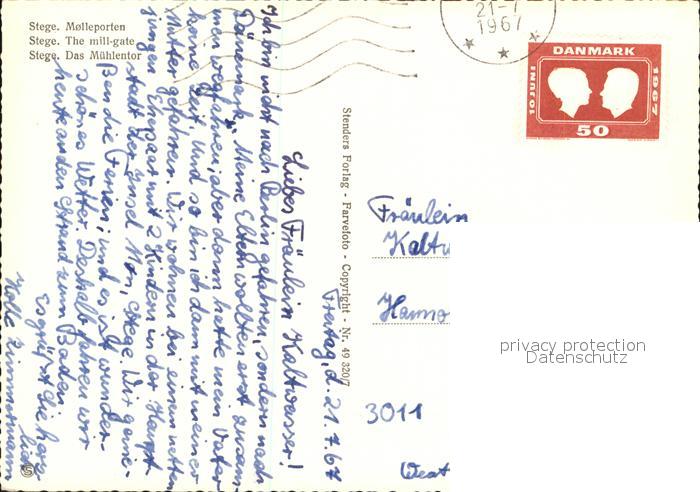 Stege. Mølleporten
Stege. The mill-gate
Stege. Das Mühlentor
21-7
1967
DANMARK
10 JUNI
1967
50
Stenders Forlag - Farvefoto - Copyright - Nr. 49 320/7
Freitag, d. 21.7.67
Liebes Fräulein Kaltwasser!
Ich bin nicht nach Berlin gefahren, sondern nach
Dänemark. Meine Eltern wollten erst zusam-
men wegfahren, aber dann hatte mein Vater
keine Zeit und so bin ich dann mit meiner
Mutter gefahren. Wir wohnen bei einem netten
jungen Ehepaar mit 2 Kindern in der Haupt-
stadt der Insel Møn, Stege. Wir genie-
ßen die Ferien, und es ist wunder-
schönes Wetter. Deshalb fahren wir
heute an den Strand zum Baden.
Es grüßt Sie herz-
lich
Zimmermann
Fräulein
Kaltw
Hanno
3011
West
privacy protection
Datenschutz